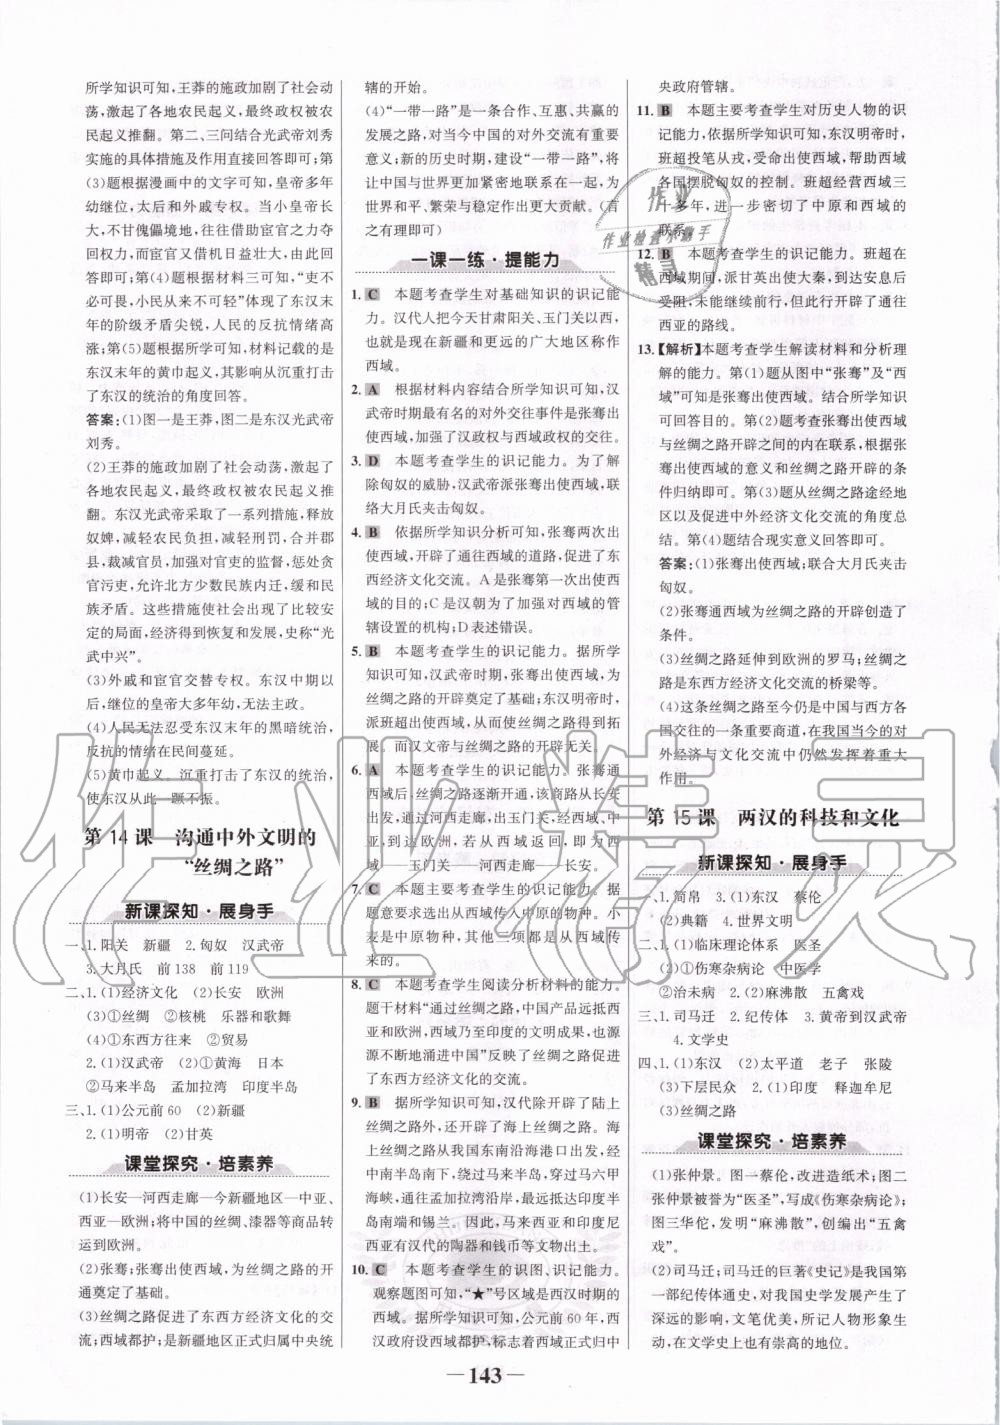 所学知识可知,王莽的施政加剧了社会动
荡,激起了各地农民起义,最终政权被农
民起义推翻。第二、三问结合光武帝刘秀
实施的具体措施及作用直接回答即可;第
(3)题根据漫画中的文字可知,皇帝多年
幼继位,太后和外戚专权。当小皇帝长
大,不甘傀儡境地,往往借助宦官之力夺
回权力,而宦官又借机日益壮大,据此回
答即可;第(4)题根据材料三可知,“吏不
必可畏,小民从来不可轻”体现了东汉末
年的阶级矛盾尖锐,人民的反抗情绪日益
高涨;第(5)题根据所学可知,材料记载的是
东汉末年的黄巾起义,其影响从打击了
东汉的统治的角度回答。
答案:(1)图一是王莽,图二是东汉光武帝
刘秀。
(2)王莽的施政加剧了社会动荡,激起了各
地农民起义,最终政权被农民起义推
翻。东汉光武帝采取了一系列措施,释放
奴婢,减轻农民负担,减轻刑罚,合并郡
县,裁减官员,加强对官吏的监督,惩处贪
官污吏,允许北方少数民族内迁,缓和民
族矛盾。这些措施使社会出现了比较安
定的局面,经济得到恢复和发展,史称“光
武中兴”。
(3)外戚和宦官交替专权。东汉中期以
后,继位的皇帝大多年幼,无法主政。
(4)人民无法忍受东汉末年的黑暗统治,
反抗的情绪在民间蔓延。
(5)黄巾起义。沉重打击了东汉的统治,
使东汉从此一蹶不振。
第 14 课 沟通中外文明的
“丝绸之路”
新课探知·展身手
一、1.阳关 新疆 2.匈奴 汉武帝
3.大月氏 前 138 前 119
二、1.(1)经济文化 (2)长安 欧洲
(3)①丝绸 ②核桃 乐器和歌舞
(4)①东西方往来 ②贸易
2.(1)汉武帝 (2)①黄海 日本
②马来半岛 孟加拉湾 印度半岛
三、1.(1)公元前 60 (2)新疆
2.(1)明帝 (2)甘英
课堂探究·培素养
(1)长安—河西走廊—今新疆地区—中亚、
西亚—欧洲;将中国的丝绸、漆器等商品转
运到欧洲。
(2)张骞;张骞出使西域,为丝绸之路的开
通奠定了基础。
(3)丝绸之路促进了东西方经济文化的交
流;西域都护;是新疆地区正式归属中央统
辖的开始。
(4)“一带一路”是一条合作、互惠、共赢的
发展之路,对当今中国的对外交流有重要
意义;新的历史时期,建设“一带一路”,将
让中国与世界更加紧密地联系在一起,为
世界和平、繁荣与稳定作出更大贡献。(言
之有理即可)
一课一练·提能力
1. C 本题考查学生对基础知识的识记能
力。汉代人把今天甘肃阳关、玉门关以西,
也就是现在新疆和更远的广大地区称作
西域。
2. A 根据材料内容结合所学知识可知,汉
武帝时期最有名的对外交往事件是张骞出
使西域,加强了汉政权与西域政权的交往。
3. D 本题考查学生的识记能力。为了解
除匈奴的威胁,汉武帝派张骞出使西域,联
络大月氏夹击匈奴。
4. B 依据所学知识分析可知,张骞两次出
使西域,开辟了通往西域的道路,促进了东
西经济文化交流。A 是张骞第一次出使西
域的目的;C 是汉朝为了加强对西域的管
辖设置的机构;D 表述错误。
5. B 本题考查学生的识记能力。据所学
知识可知,汉武帝时期,张骞出使西域,为
丝绸之路的开辟奠定了基础;东汉明帝时,
派班超出使西域,使丝绸之路得到拓
展。而汉文帝与丝绸之路的开辟无关。
6. A 本题考查学生的识记能力。张骞通
西域后,丝绸之路逐渐开通,该商路从长安
出发,穿过河西走廊,经西域运往中亚、西
亚,到达欧洲,若从西域返回,即为西域
—玉门关—河西走廊—长安。
7. C 本题主要考查学生的识记能力。据
题意要求选择从西域传入中原的物种。小
麦是中原物种,其他三项都是从西域传
来的。
8. C 本题考查学生阅读分析材料的能力。
题干材料“通过丝绸之路,中国产品远抵西
亚和欧洲,西域乃至印度的文明成果,也源
源不断地涌进中国”反映了丝绸之路促进
了东西方经济文化的交流。
9. B 据所学知识可知,汉代除开辟了陆上
丝绸之路外,还开辟了海上丝绸之路。海
上丝绸之路从我国东南沿海港口出发,经
中南半岛南下,绕过马来半岛,穿过马六甲
海峡,通往孟加拉湾沿岸,最远抵达印度半
岛南端和锡兰。因此,马来西亚和印度尼
西亚有汉代的陶器和钱币等文物出土。
10. C 本题考查学生的识图、识记能力。
观察题图可知,“★”号区域是西汉时期的西
域。据所学知识可知,公元前 60 年,西
汉政府设西域都护,标志着西域正式归中
央政府管辖。
11. B 本题主要考查学生对历史人物的识
记能力。依据所学知识可知,东汉明帝时,
班超投笔从戎,受命出使西域,帮助西域
各国摆脱匈奴的控制。班超经营西域三
十多年,进一步密切了中原和西域的
联系。
12. B 本题考查学生的识记能力。班超在
西域期间,派甘英出使大秦,到达安息后
受阻,未能继续前行,但此行开辟了通往
西亚的路线。
13.【解析】本题考查学生解读材料和分析理
解的能力。第(1)题从图中“张骞”及“西
域”可知是张骞出使西域。结合所学知识
可回答目的。第(2)题考查张骞出使西域
与丝绸之路开辟之间的内在联系,根据张
骞出使西域的意义和丝绸之路开辟的条
件归纳即可。第(3)题从丝绸之路途经地
区以及促进中外经济文化交流的角度总
结。第(4)题结合现实意义回答即可。
答案:(1)张骞出使西域;联合大月氏夹击
匈奴。
(2)张骞通西域为丝绸之路的开辟创造了
条件。
(3)丝绸之路延伸到欧洲的罗马;丝绸之
路是东西方经济文化交流的桥梁等。
(4)这条丝绸之路至今仍是中国与西方各
国交往的一条重要商道,在我国当今的对
外经济与文化交流中仍然发挥着重大
作用。
第 15 课 两汉的科技和文化
新课探知·展身手
一、1.简帛 3.(1)东汉 蔡伦
(2)典籍 4.世界文明
二、1.(1)临床理论体系 医圣
(2)①伤寒杂病论 中医学
②治未病 2.(2)麻沸散 五禽戏
三、1.司马迁 2.纪传体 3.黄帝到汉武帝
4.文学史
四、1.(1)东汉 (2)太平道 老子 张陵
(3)下层民众 2.(1)印度 释迦牟尼
(3)丝绸之路
课堂探究·培素养
(1)张仲景。图一蔡伦,改进造纸术;图二
张仲景被誉为“医圣”,写成《伤寒杂病论》;
图三华佗,发明“麻沸散”,创编出“五禽
戏”。
(2)司马迁;司马迁的巨著《史记》是我国第
一部纪传体通史,对我国史学发展产生了
深远的影响,文笔优美,所记人物形象生
动,在文学史上有崇高的地位。
— 143 —
作业
作业检查小助手
精灵
作业精灵